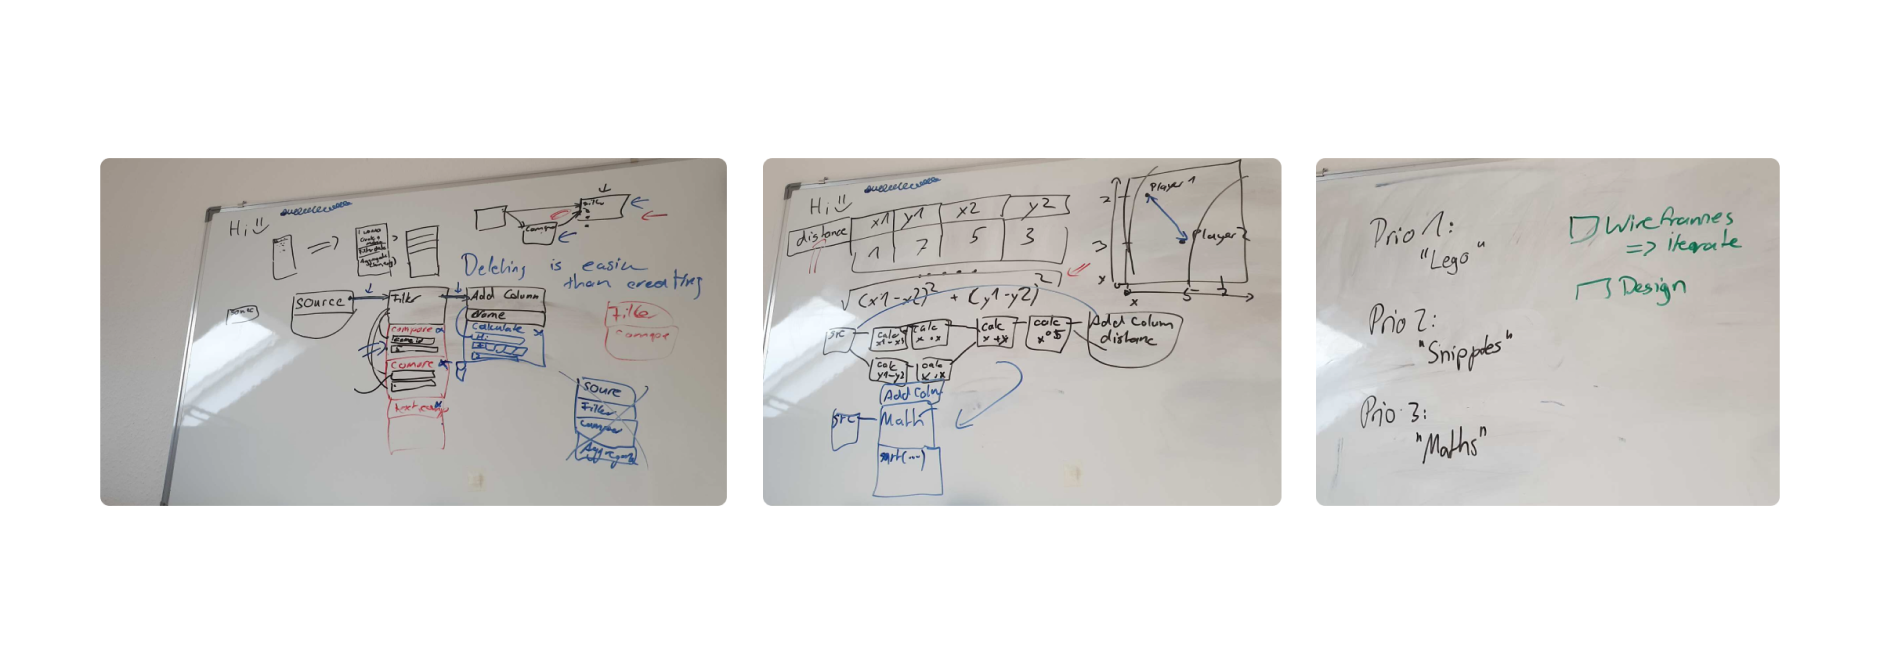 Hi
Filter
Compare
Deleting is easier
than creating
Source
Filter
Add Column
Name
compare
Calculate
Filter
Compare
Source
Filter
Compare
Aggregate
Hi
distance
x1 y1 x2 y2
1 7 5 3
√(x1-x2)² + (y1-y2)²
Player 1
Player 2
2
3
x
x
5
src
calc
x1-x2
calc
x·x
calc
x+x
calc
x^0.5
Add Column
distance
calc
y1-y2
calc
x·x
Add Colum
src
Math
sqrt(...)
Prio 1:
"Lego"
Prio 2:
"Snippes"
Prio 3:
"Maths"
Wireframes
=> iterate
Design